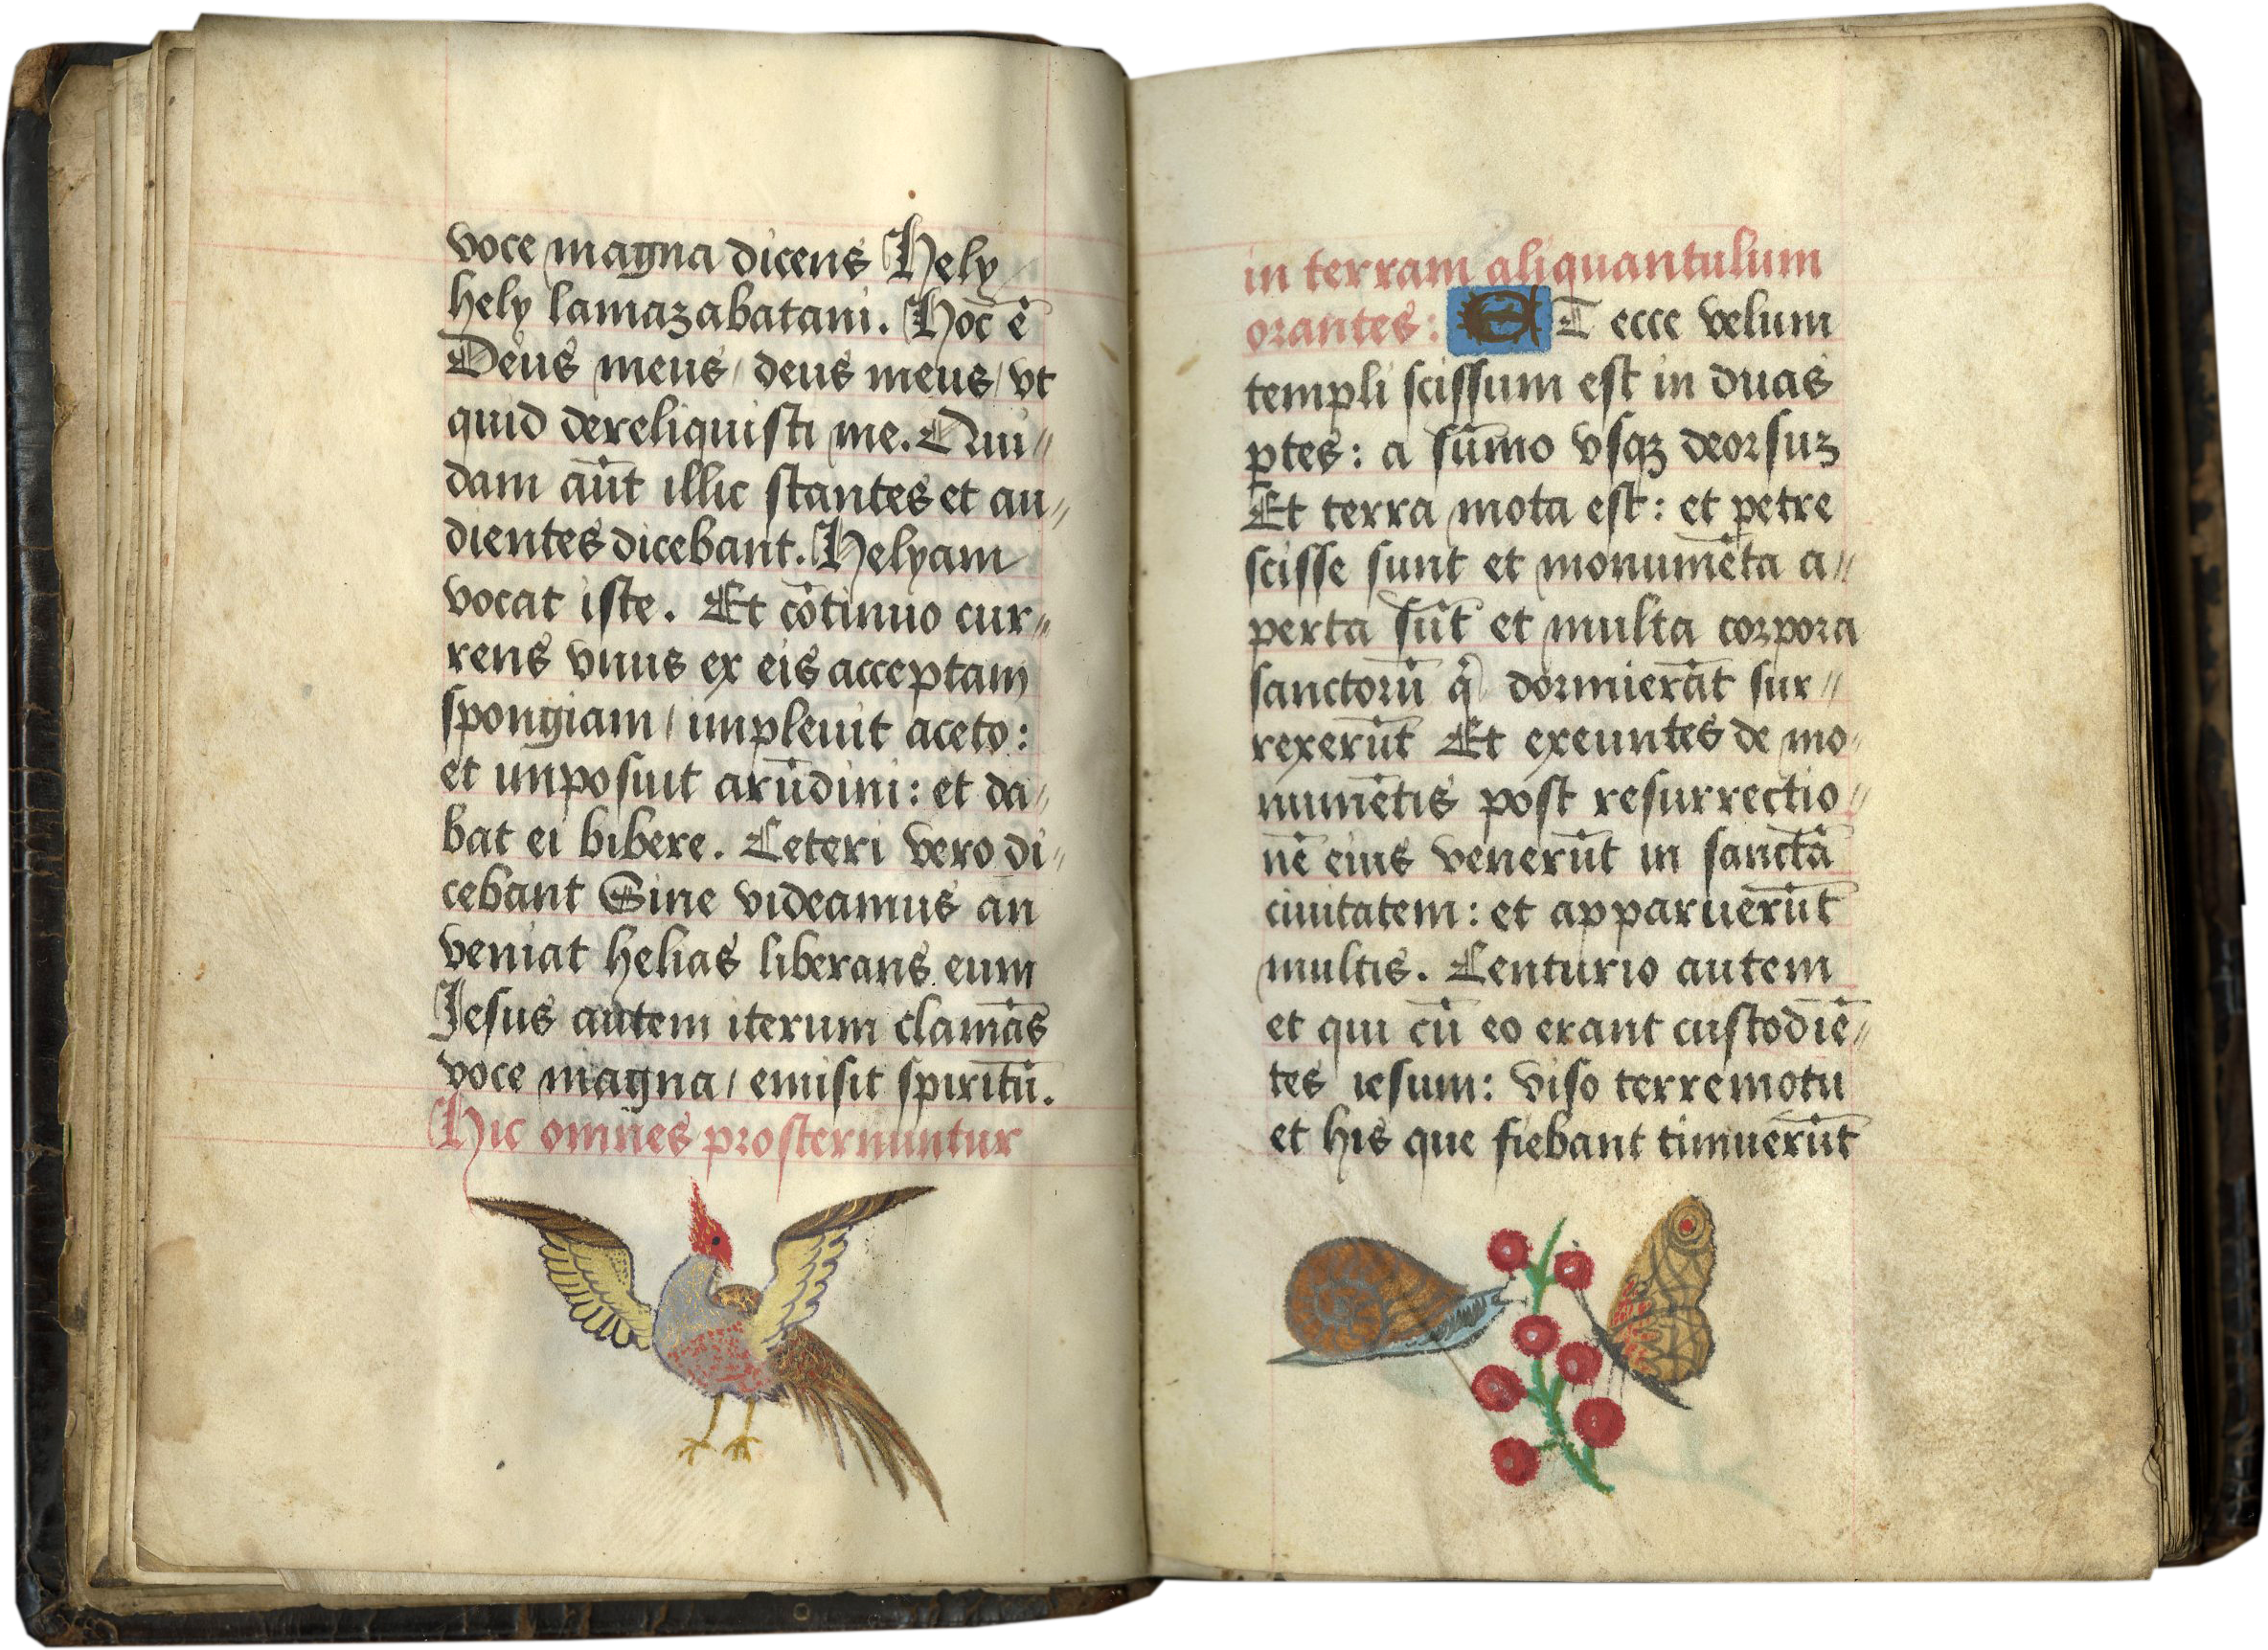 voce magna dicens Hely
hely lamazabatani. Hoc ē
Deus meus / deus meus / vt
quid dereliquisti me. Qui//
dam aūt illic stantes et au//
dientes dicebant. Helyam
vocat iste. Et cōtinuo cur//
rens vnus ex eis acceptam
spongiam / impleuit aceto:
et imposuit arūdini: et da//
bat ei bibere. Ceteri vero di//
cebant Sine videamus an
veniat helias liberans eum
Jesus autem iterum clamās
voce magna / emisit spiritū.
Hic omnes prosternuntur
in terram aliquantulum
orantes: ET ecce velum
templi scissum est in duas
ꝑtes: a sūmo vsqꝫ deorsuꝫ
Et terra mota est: et petre
scisse sunt et monumēta a//
perta sūt et multa corpora
sanctorū qͥ dormierāt sur//
rexerūt Et exeuntes de mo//
numētis post resurrectio//
nē eius venerūt in sanctā
ciuitatem: et apparuerūt
multis. Centurio autem
et qui cū eo erant custodiē//
tes iesum: viso terremotu
et his que fiebant timuerūt